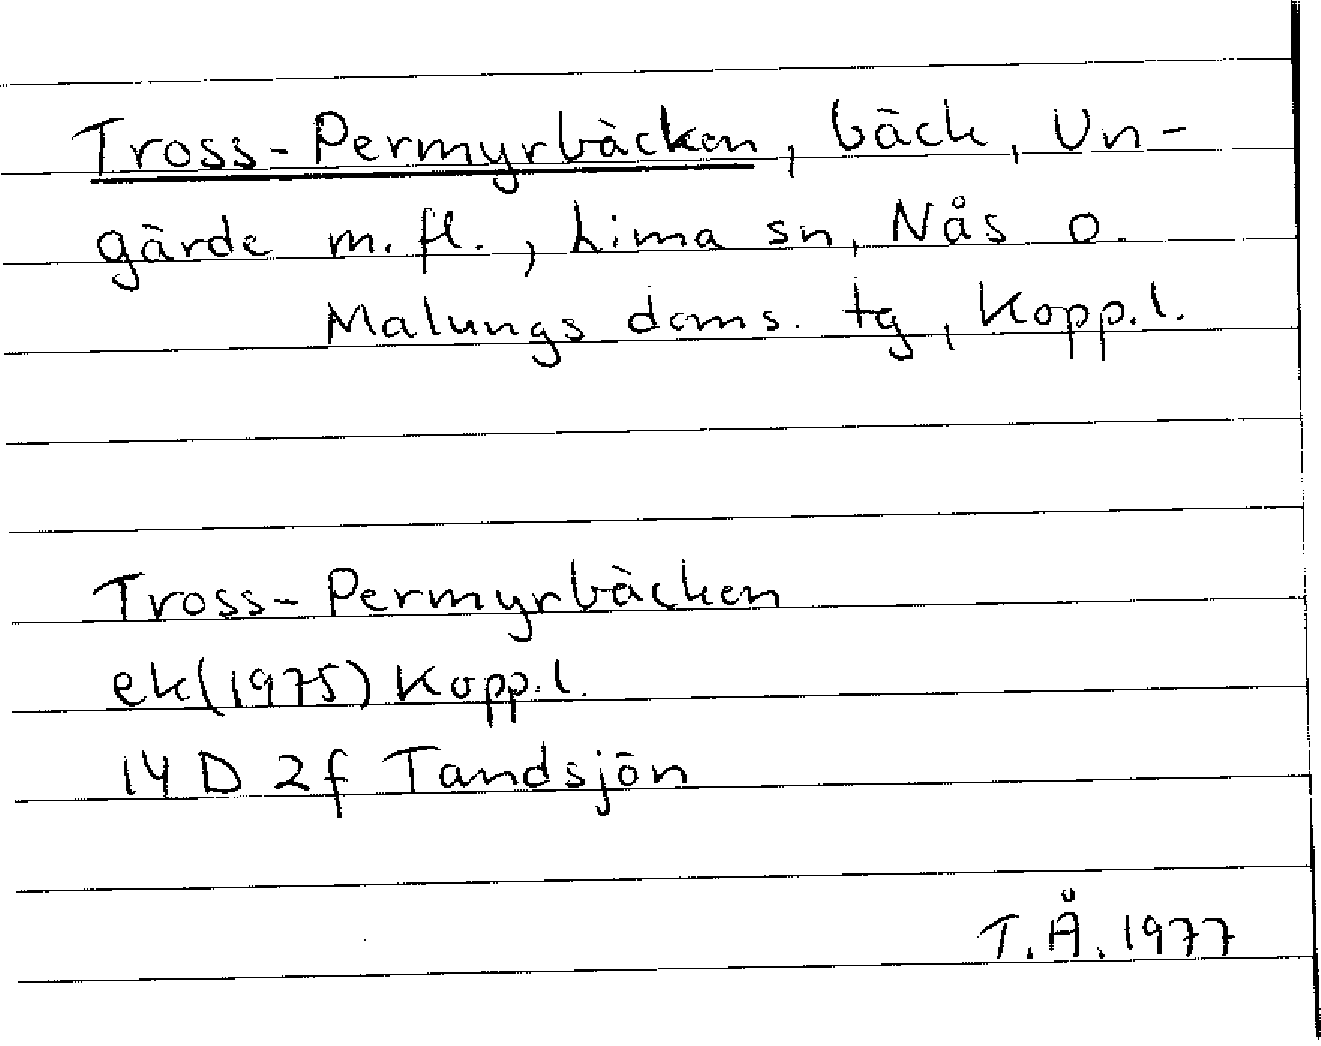 Tross-Permyrbäcken, bäck, Un-
gärde m.fl., Lima sn, Nås o.
Malungs doms. tg, Kopp.l.
Tross-Permyrbäcken
ek(1975) Kopp.l.
14 D 2f Tandsjön
T.Å. 1977